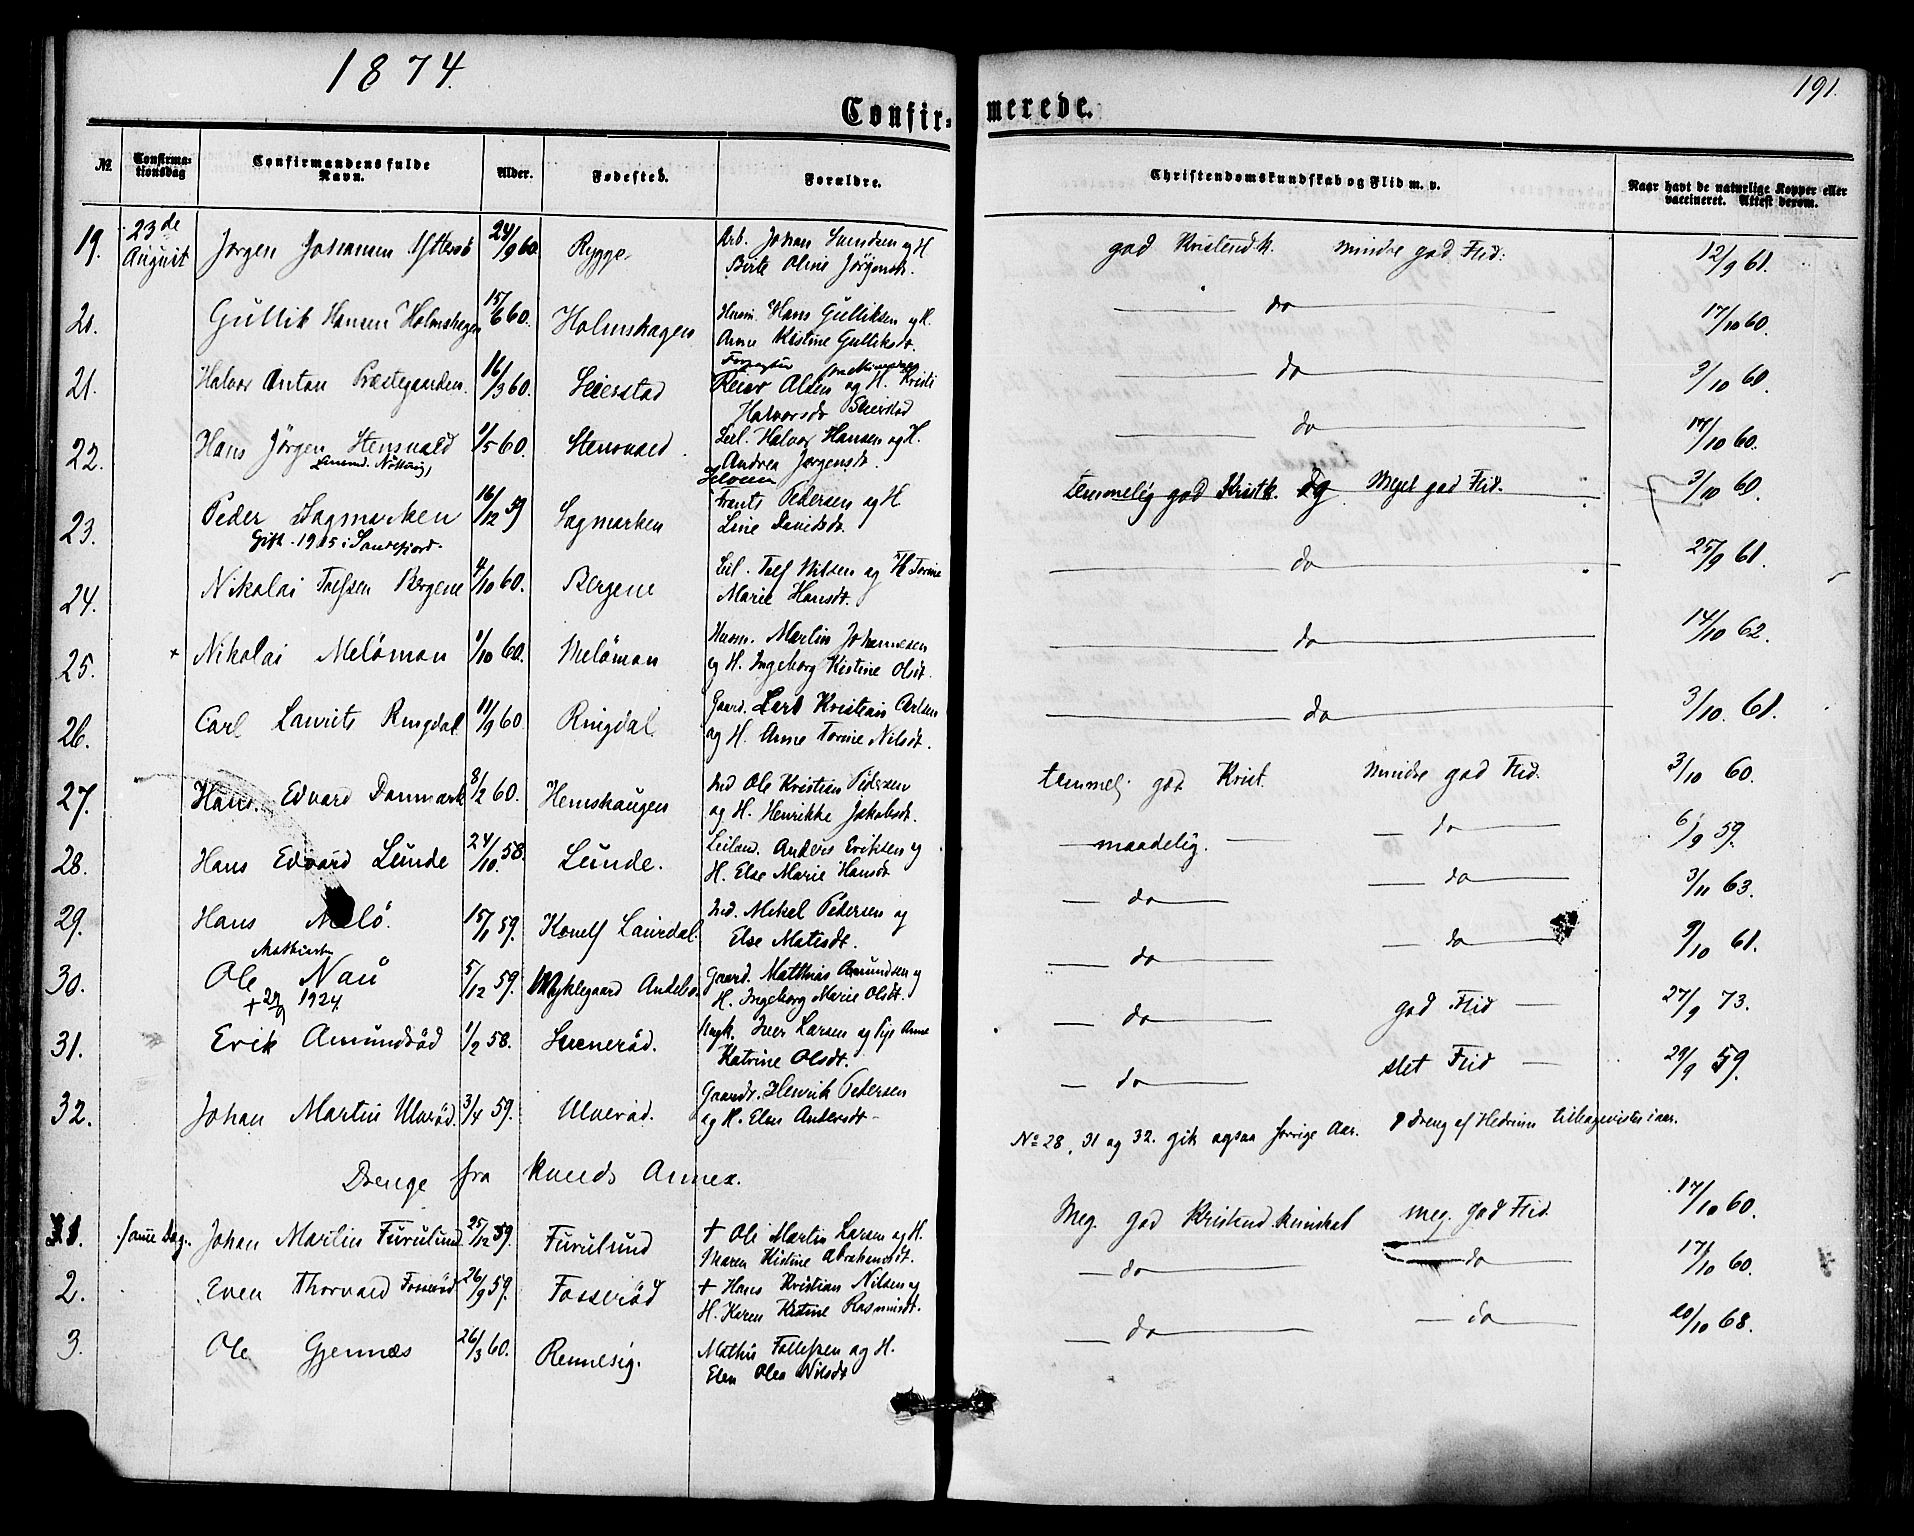 1874.
191.
Confirmerede.
№ Confirmationsdag Confirmandens fulde Navn. Alder. Fødested. Forældre. Christendomskundskab og Flid m. v. Naar havt de naturlige Kopper eller vaccineret. Attest derom.
19. 23de August Jørgen Johansen 24/9 60 Rygge Arb. Johan Svendsen og H Birte Oline Jörgensdt. god Kristendk. mindre god Flid. 12/9 61.
20. Gullik Hansen Holmshagen 15/6 60. Holmshagen Husm. Hans Gulliksen og H. Anne Kistine Gulliksdt. do 17/10 60.
21. Halvor Anton Præstegaarden. 16/3 60. Seierstad Forpagter Reier Olsen og H. Kristi Halvorsdt do 3/10 60.
22. Hans Jörgen Stensvald 1/5 60. Stensvald. Leil. Halvor Hansen og H. Andrea Jørgensdt. do 17/10 60.
23. Peder Sagmarken 16/12 59 Sagmarken Frants Pedersen og H Line Davidsdt. temmelig god Kristk. og Meget god Flid. 3/10 60.
Gift 1905 i Sandefjord.
24. Nikolai Tolfsen Bergene 4/10 60. Bergene Leil. Tolf Nilsen og H Torine Marie Hansdt. do 25/9 61.
25. × Nikolai Melöman 1/10 60. Melöman Husm. Martin Johannesen og H. Ingeborg Kistine Olsdt. do 14/10 62.
26. Carl Laurits Ringdal 11/9 60 Ringdal. Gaard. Lars Kristian Carlsen og H. Anne Torine Nilsdt. do 3/10. 61.
27. Hans Edvard Danmark 8/2 60. Hemshaugen Ind Ole Kristian Pedersen og H. Henrikke Jakobsdt. temmel. god Krist. mindre god Flid. 3/10 60.
28. Hans Edvard Lunde 24/10. 58. Lunde. Leilænd. Anders Eriksen og H. Else Marie Hansdt maadelig. do 6/9 59.
29. Hans Melö. 15/1 59. Laurdal. Ind. Mikel Pedersen og Else Matisdt. do do 3/11 63.
30. Ole Nau 5/12 59. Myklegaard Andebo. Gaard. Matthias Amundsen og H. Ingeborg Marie Olsdt. do do 9/10 61.
1924.
31. Erik Amundröd 1/2 58. Iver Larsen og Pige Anne Katrine Olsdt. do god Flid 27/9 73.
32. Johan Martin Ulveröd. 3/4 59. Ulveröd. Gaardt. Henrik Pedersen og H. Elen Andersdt do slet Flid 29/9 59.
No 28, 31 og 32. gik ogsaa forrige Aar. 1 Dreng af Hedrum tilbagevistes i aar.
Drenge fra Kvands Annex.
1. samme Dag. Johan Martin Furulund 25/12 59. Furulund † Ole Martin Larsen og H. Maren Kistine Abrahamsdt. Meg. god Kristend. kundskab meg. god Flid. 17/10 60.
2. Even Thorvald Fosseröd 26/9 59. Fosseröd † Hans Kristian Nilsen og H. Karen Kistine Rasmusdt. do do 17/10 60.
3. Ole Gjennæs 26/3 60. Rennesig. Mathis Tollefsen og H. Elen Olea Nilsdt do do 20/10 68.